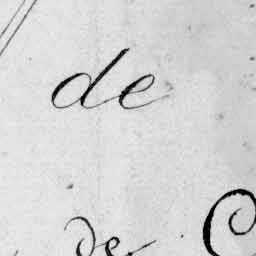 de
de C